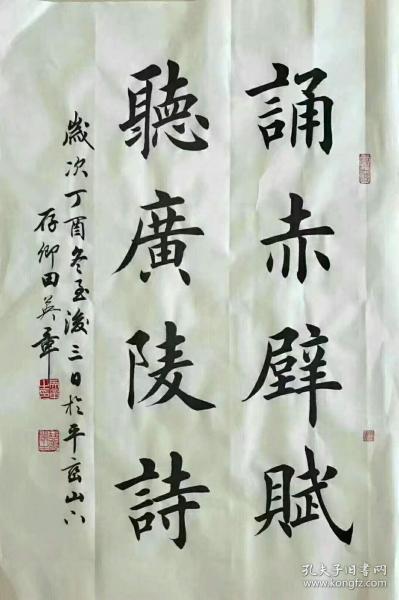 誦赤壁賦
聽廣陵詩
歲次丁酉冬至後三日於平密山下
存卿田英章
孔夫子旧书网
www.kongfz.com